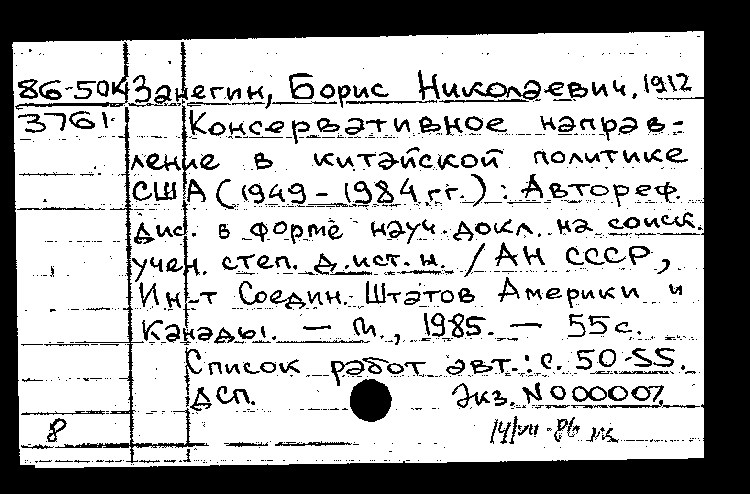 86-50к Занегин, Борис Николаевич, 1912
3761 Консервативное направ-
ление в китайской политике
США (1949-1984 гг.): Автореф.
дис. в форме науч. докл. на соиск.
учен. степ. д. ист. н. / АН СССР,
Ин-т Соедин. Штатов Америки и
Канады. — М., 1985. — 55 с.
Список работ авт.: с. 50-55.
ДСП. Экз. N 000007.
8 14/VII-86